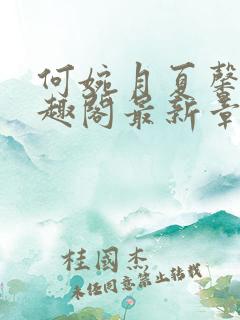 何婉月夏馨
趣阁最新章
桂國杰
未经同意禁止转载